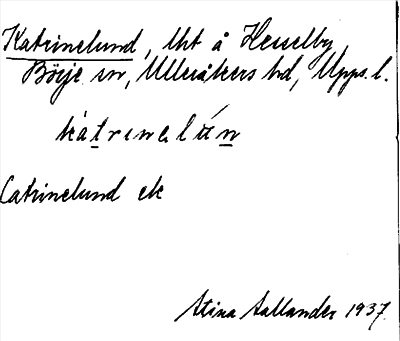 Katrinelund, lht å Hesselby
Börje sn, Ulleråkers hd, Upps. l.
kátrinelún
Catrinelund ek
Stina Sallander 1937.